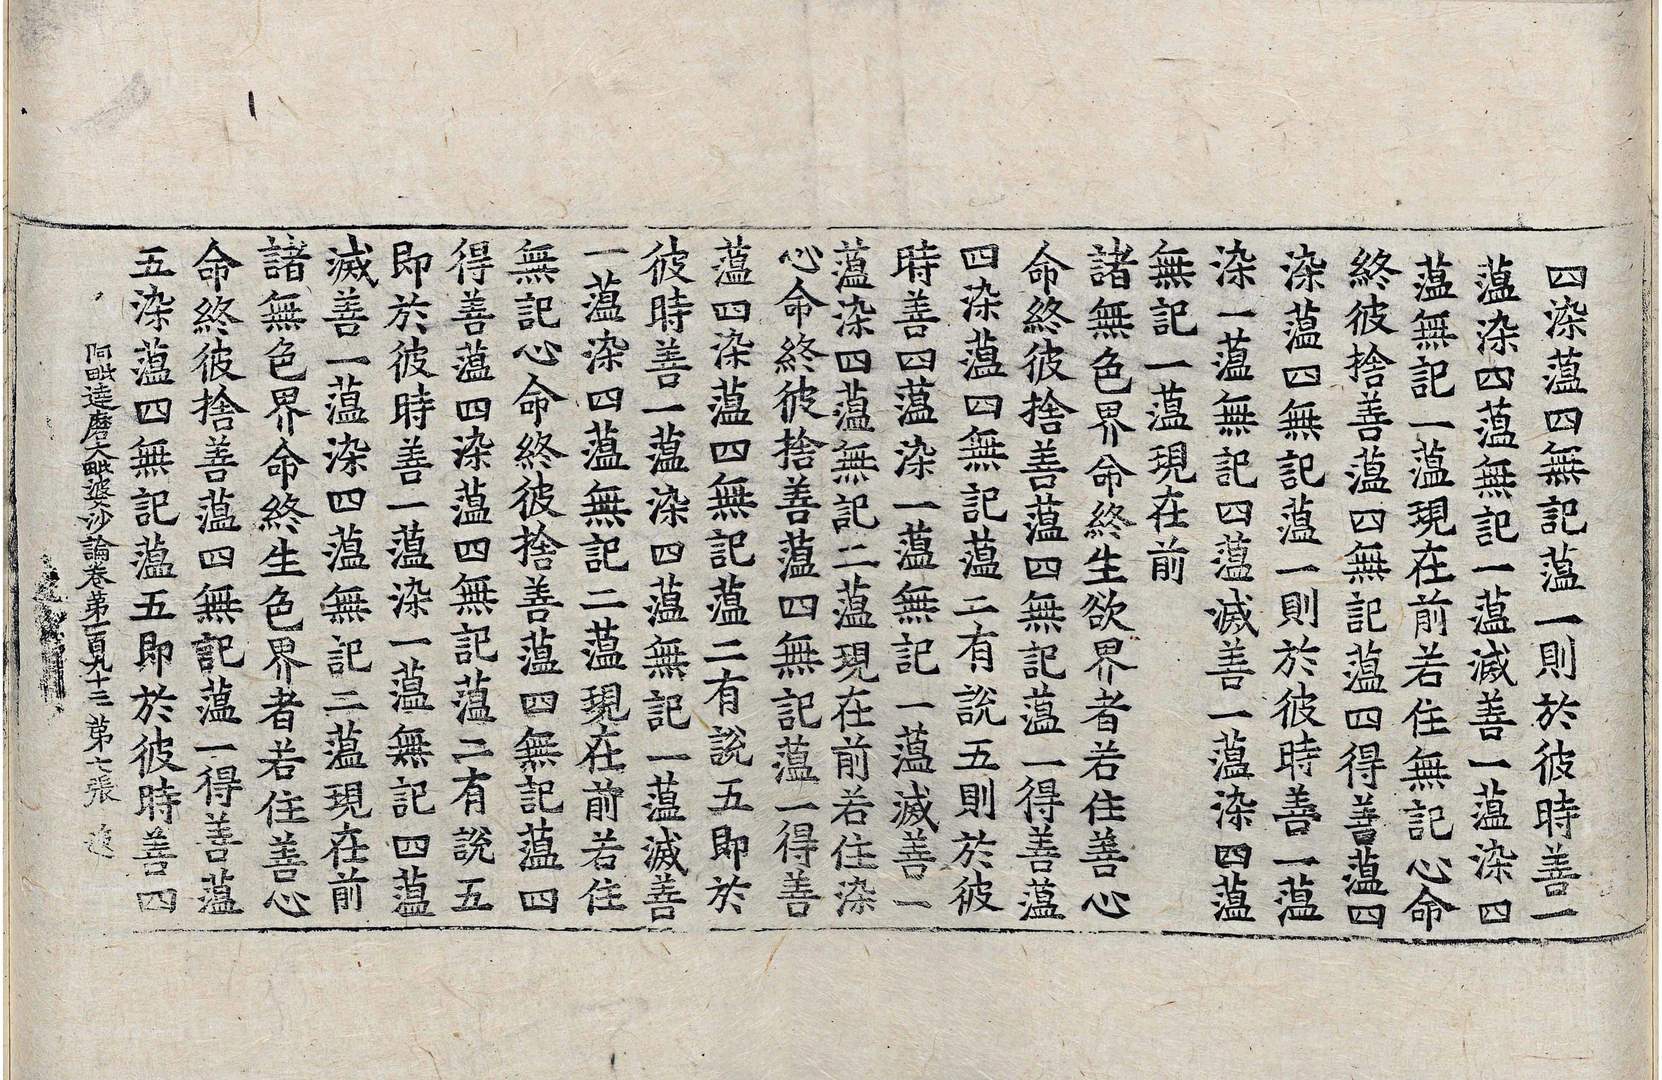 四染薀四無記薀一則於彼時善一
薀染四薀無記一薀滅善一薀染四
薀無記一薀現在前若住無記心命
終彼捨善薀四無記薀四得善薀四
染薀四無記薀一則於彼時善一薀
染一薀無記四薀滅善一薀染四薀
無記一薀現在前
諸無色界命終生欲界者若住善心
命終彼捨善薀四無記薀一得善薀
四染薀四無記薀二有說五則於彼
時善四薀染一薀無記一薀滅善一
薀染四薀無記二薀現在前若住染
心命終彼捨善薀四無記薀一得善
薀四染薀四無記薀二有說五即於
彼時善一薀染四薀無記一薀滅善
一薀染四薀無記二薀現在前若住
無記心命終彼捨善薀四無記薀四
得善薀四染薀四無記薀二有說五
即於彼時善一薀染一薀無記四薀
滅善一薀染四薀無記二薀現在前
諸無色界命終生色界者若住善心
命終彼捨善薀四無記薀一得善薀
五染薀四無記薀五即於彼時善四
阿毗達磨大毗婆沙論卷第一百九十三 第七張